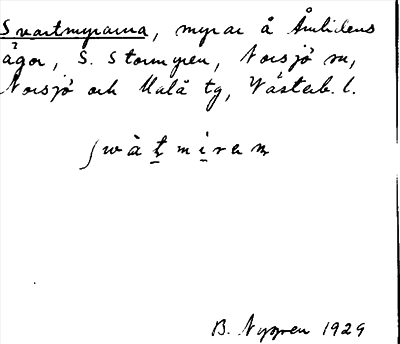 Svartmyrarna, myrar å Åmlidens
ägor, S. Stormyren, Norsjö sn,
Norsjö och Malå tg, Västerb. l.
B. Nygren 1929